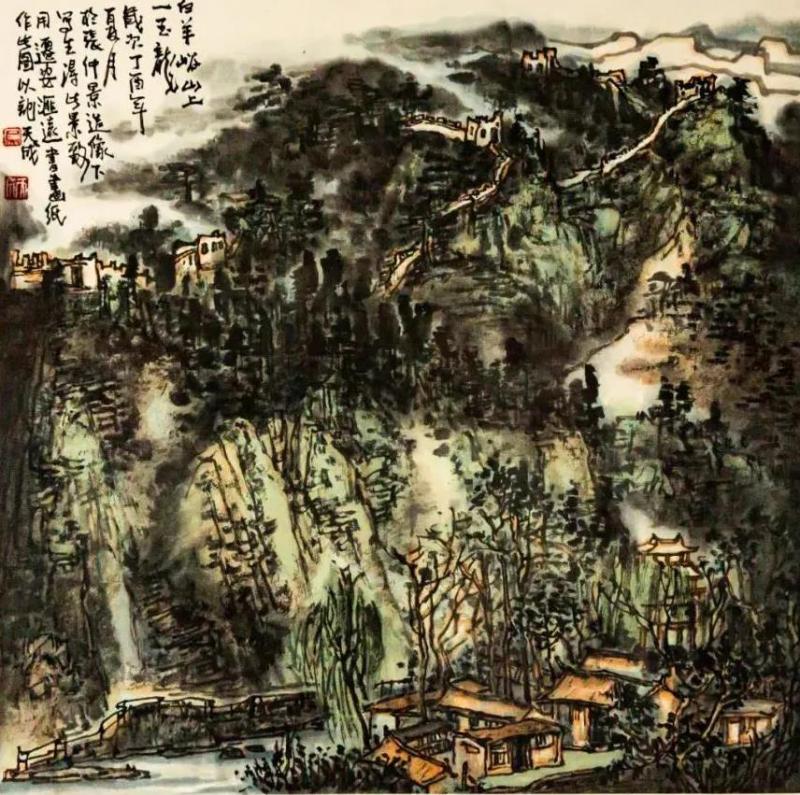 白羊峪山上
一玉龙
岁次丁酉年
夏月
於张仲景造像下
写生得此景致
用迁安滙远书画纸
作此图以记天成